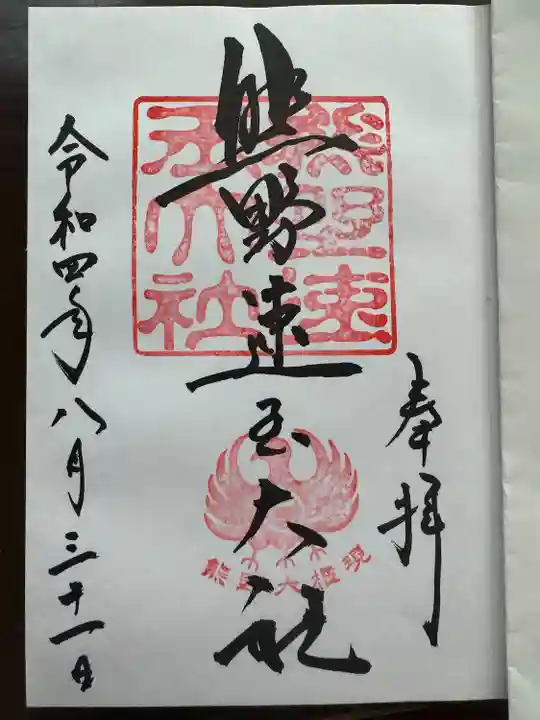 奉拝
熊野速玉大社
熊野速玉大社
熊野大権現
令和四年八月三十一日